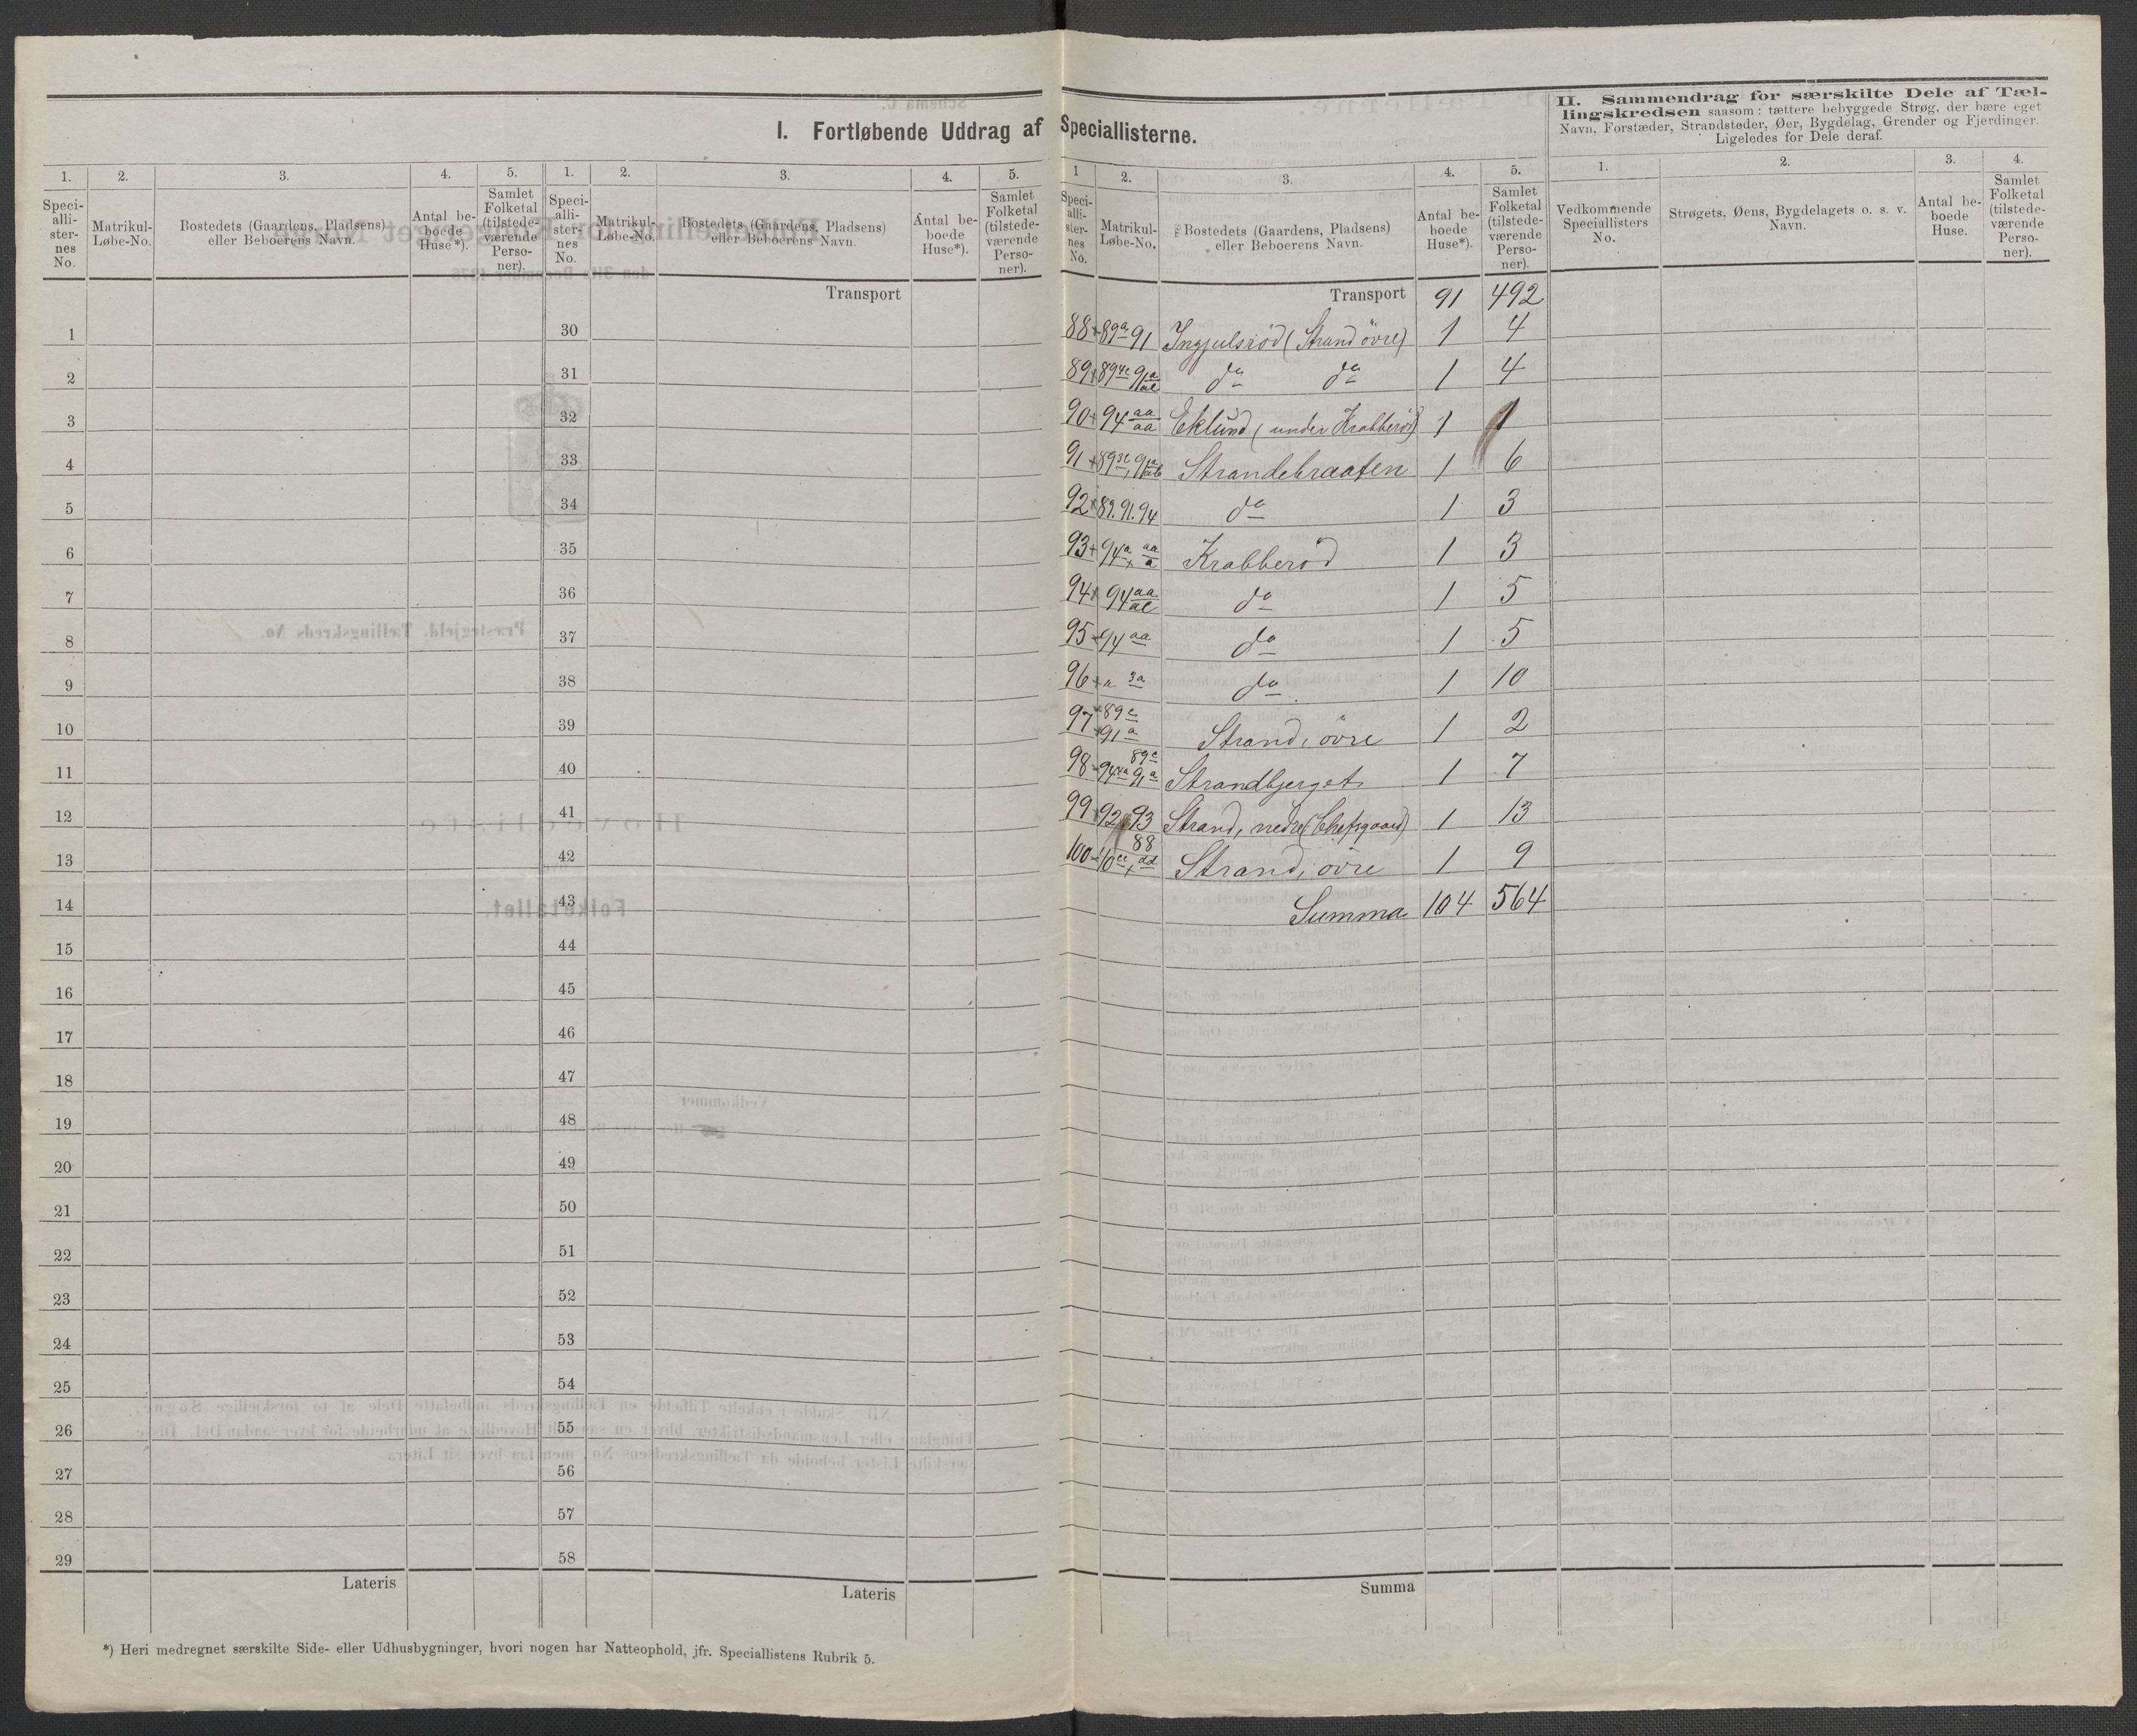 I. Fortløbende Uddrag af Speciallisterne.
II. Sammendrag for særskilte Dele af Tæl-
lingskredsen saasom: tættere bebyggede Strøg, der bære eget
Navn, Forstæder, Strandsteder, Øer, Bygdelag, Grender og Fjerdinger.
Ligeledes for Dele deraf.
1. 2. 3. 4. 5. 1. 2. 3. 4. 5. 1 2. 3. 4. 5. 1. 2. 3. 4.
Speci-
alli-
ster-
nes
No.
Matrikul-
Løbe-No.
Bostedets (Gaardens, Pladsens)
eller Beboerens Navn.
Antal be-
boede
Huse*).
Samlet
Folketal
(tilstede-
værende
Perso-
ner).
Speci-
alli-
ster-
nes
No.
Matrikul-
Løbe-No.
Bostedets (Gaardens, Pladsens)
eller Beboerens Navn.
Antal be-
boede
Huse*).
Samlet
Folketal
(tilstede-
værende
Perso-
ner).
Speci-
alli-
ster-
nes
No.
Matrikul-
Løbe-No.
Bostedets (Gaardens, Pladsens)
eller Beboerens Navn.
Antal be-
boede
Huse*).
Samlet
Folketal
(tilstede-
værende
Perso-
ner).
Vedkommende
Speciallisters
No.
Strøgets, Øens, Bygdelagets o. s. v.
Navn.
Antal be-
boede
Huse.
Samlet
Folketal
(tilstede-
værende
Perso-
ner).
Transport
Transport 91 492
1 30 88 89a 91 Ingjulsröd (Strand övre) 1 4
2 31 89 do do 1 4
3 32 90 94 aa aa Eklund (under Krabberöd) 1 1
4 33 91 Strandebraaten 1 6
5 34 92 89. 91. 94 do 1 3
6 35 93 94a aa a Krabberöd 1 3
7 36 94 94 aa ac do 1 5
8 37 95 94 aa do 1 5
9 38 96 " 3a do 1 10
10 39 97 89c 91a Strand, övre 1 2
11 40 98 89c 91a Strandbjerget 1 7
12 41 99 92, 93 Strand, nedre 1 13
13 42 100 88 Strand, övre 1 9
14 43 Summa 104 564
15 44
16 45
17 46
18 47
19 48
20 49
21 50
22 51
23 52
24 53
25 54
26 55
27 56
28 57
29 58
Lateris Lateris Summa
*) Heri medregnet særskilte Side- eller Udhusbygninger, hvori nogen har Natteophold, jfr. Speciallistens Rubrik 5.